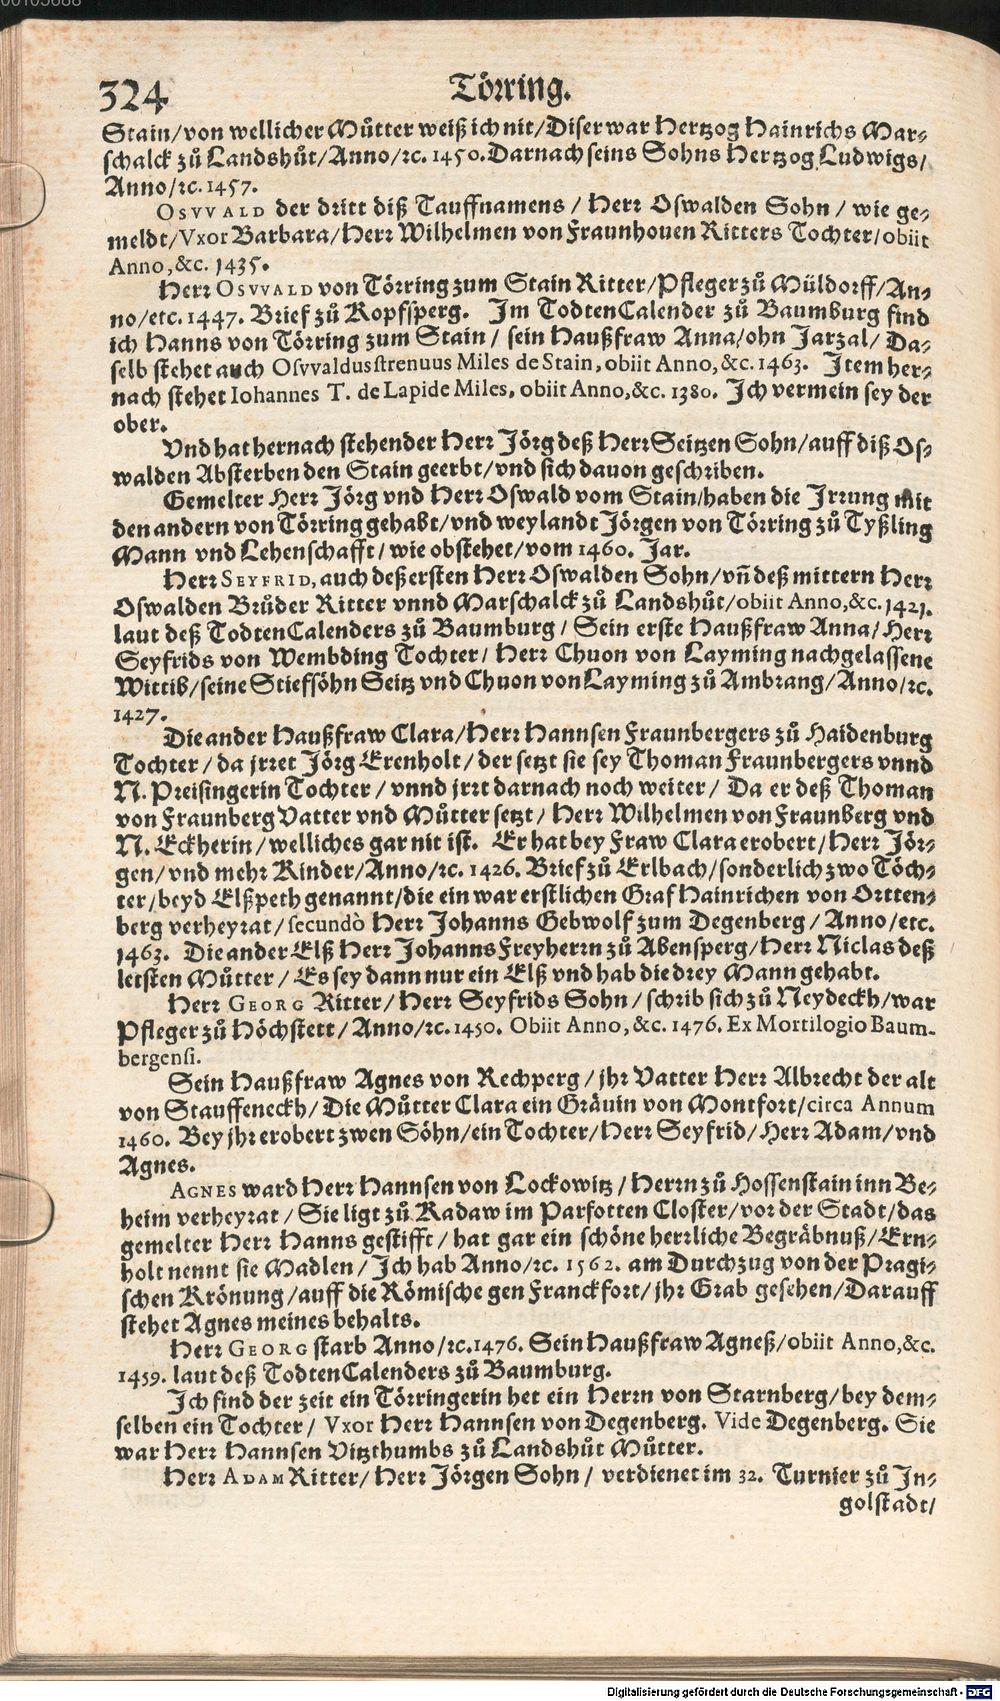 324 Törring.
Stain/von wellicher Můtter weiß ich nit/Diser war Hertzog Hainrichs Mar⸗
schalck zů Landshůt/Anno/ꝛc. 1450. Darnach seins Sohns Hertzog Ludwigs/
Anno/ꝛc. 1457.
OSVVALD der dritt diß Tauffnamens / Herr Oswalden Sohn / wie ge⸗
meldt/Vxor Barbara/Herr Wilhelmen von Fraunhouen Ritters Tochter/obiit
Anno, &c. 1435.
Herr OSVVALD von Törring zum Stain Ritter/Pfleger zů Müldorff/An⸗
no/etc. 1447. Brief zů Kopfsperg. Im TodtenCalender zů Baumburg find
ich Hanns von Törring zum Stain / sein Haußfraw Anna/ohn Jarzal/ Da⸗
selb stehet auch Osvvaldus strenuus Miles de Stain, obiit Anno, &c. 1463. Item her⸗
nach stehet Iohannes T. de Lapide Miles, obiit Anno, &c. 1380. Ich vermein sey der
ober.
Vnd hat hernach stehender Herr Jörg deß Herr Seitzen Sohn/auff diß Os⸗
walden Absterben den Stain geerbt/vnd sich dauon geschriben.
Gemelter Herr Jörg vnd Herr Oswald vom Stain/haben die Irrung mit
den andern von Törring gehabt/vnd weylandt Jörgen von Törring zů Tyßling
Mann vnd Lehenschafft / wie obstehet/vom 1460. Jar.
Herr SEYFRID, auch deß ersten Herr Oswalden Sohn/vñ deß mittern Herr
Oswalden Brůder Ritter vnnd Marschalck zů Landshůt/obiit Anno, &c. 1421.
laut deß TodtenCalenders zů Baumburg / Sein erste Haußfraw Anna/ Herr
Seyfrids von Wembding Tochter/ Herr Chuon von Layming nachgelassene
Wittib/seine Stiefsöhn Seitz vnd Chuon von Layming zů Ambrang/Anno/ꝛc.
1427.
Die ander Haußfraw Clara/Herr Hannsen Fraunbergers zů Haidenburg
Tochter / da jrret Jörg Erenholt / der setzt sie sey Thoman Fraunbergers vnnd
N. Preisingerin Tochter / vnnd jrrt darnach noch weiter / Da er deß Thoman
von Fraunberg Vatter vnd Můtter setzt / Herr Wilhelmen von Fraunberg vnd
N. Eckherin / welliches gar nit ist. Er hat bey Fraw Clara erobert/ Herr Jör⸗
gen/vnd mehr Kinder/Anno/ꝛc. 1426. Brief zů Erlbach/sonderlich zwo Töch⸗
ter/beyd Elßpeth genannt/die ein war erstlichen Graf Hainrichen von Ortten⸗
berg verheyrat/ secundò Herr Johanns Gebwolf zum Degenberg / Anno/etc.
1463. Die ander Elß Herr Johanns Freyherrn zů Abensperg/Herr Niclas deß
letsten Můtter / Es sey dann nur ein Elß vnd hab die drey Mann gehabt.
Herr GEORG Ritter/ Herr Seyfrids Sohn / schrib sich zů Neydeckh/war
Pfleger zů Höchstett/ Anno/ꝛc. 1450. Obiit Anno, &c. 1476. Ex Mortilogio Baum-
bergensi.
Sein Haußfraw Agnes von Rechperg / jhr Vatter Herr Albrecht der alt
von Stauffeneckh/ Die Můtter Clara ein Gräuin von Montfort/circa Annum
1460. Bey jhr erobert zwen Söhn/ein Tochter/Herr Seyfrid/Herr Adam/vnd
Agnes.
AGNES ward Herr Hannsen von Lockowitz / Herrn zů Hossenstain inn Be⸗
heim verheyrat / Sie ligt zů Kadaw im Parfotten Closter/vor der Stadt/das
gemelter Herr Hanns gestifft/ hat gar ein schöne herrliche Begräbnuß/ Ern⸗
holt nennt sie Madlen / Ich hab Anno/ꝛc. 1562. am Durchzug von der Pragi⸗
schen Krönung/auff die Römische gen Franckfort/jhr Grab gesehen/Darauff
stehet Agnes meines behalts.
Herr GEORG starb Anno/ꝛc. 1476. Sein Haußfraw Agneß/obiit Anno, &c.
1459. laut deß TodtenCalenders zů Baumburg.
Ich find der zeit ein Törringerin het ein Herrn von Starnberg/bey dem⸗
selben ein Tochter/ Vxor Herr Hannsen von Degenberg. Vide Degenberg. Sie
war Herr Hannsen Vitzthumbs zů Landshůt Můtter.
Herr ADAM Ritter/ Herr Jörgen Sohn / verdienet im 32. Turnier zů In⸗
golstadt/
Digitalisierung gefördert durch die Deutsche Forschungsgemeinschaft - DFG